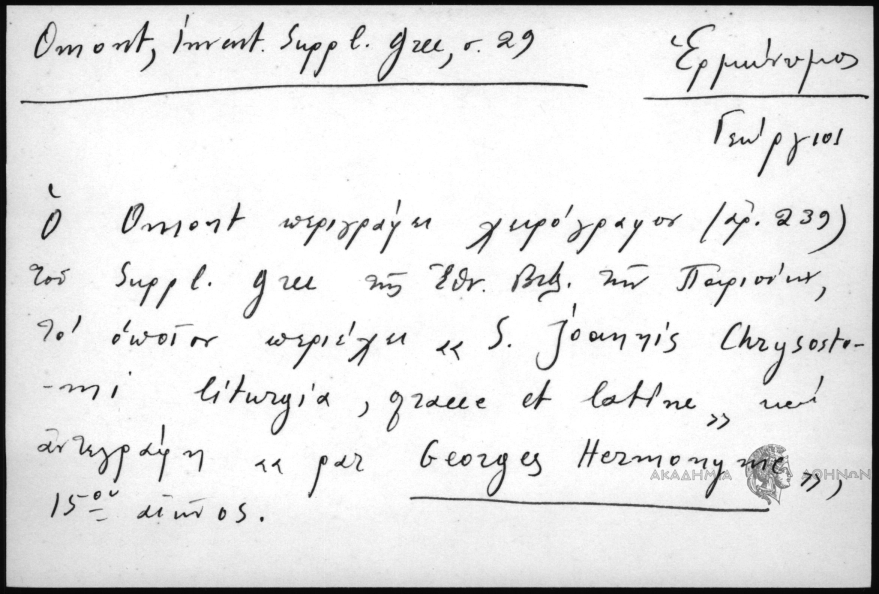 Omont, Invent. Suppl. grec, σ. 29
Ἑρμώνυμος
Γεώργιος
Ὁ Omont περιγράφει χειρόγραφον (ἀρ. 239)
τοῦ Suppl. grec τῆς Ἐθν. Βιβ. τῶν Παρισίων,
τό ὁποῖον περιέχει «S. Joannis Chrysosto-
-mi liturgia, graece et latine» καί
ἀντεγράφη «par Georges Hermonyme»,
15ου αἰῶνος.
ΑΚΑΔΗΜΙΑ ΑΘΗΝΩΝ